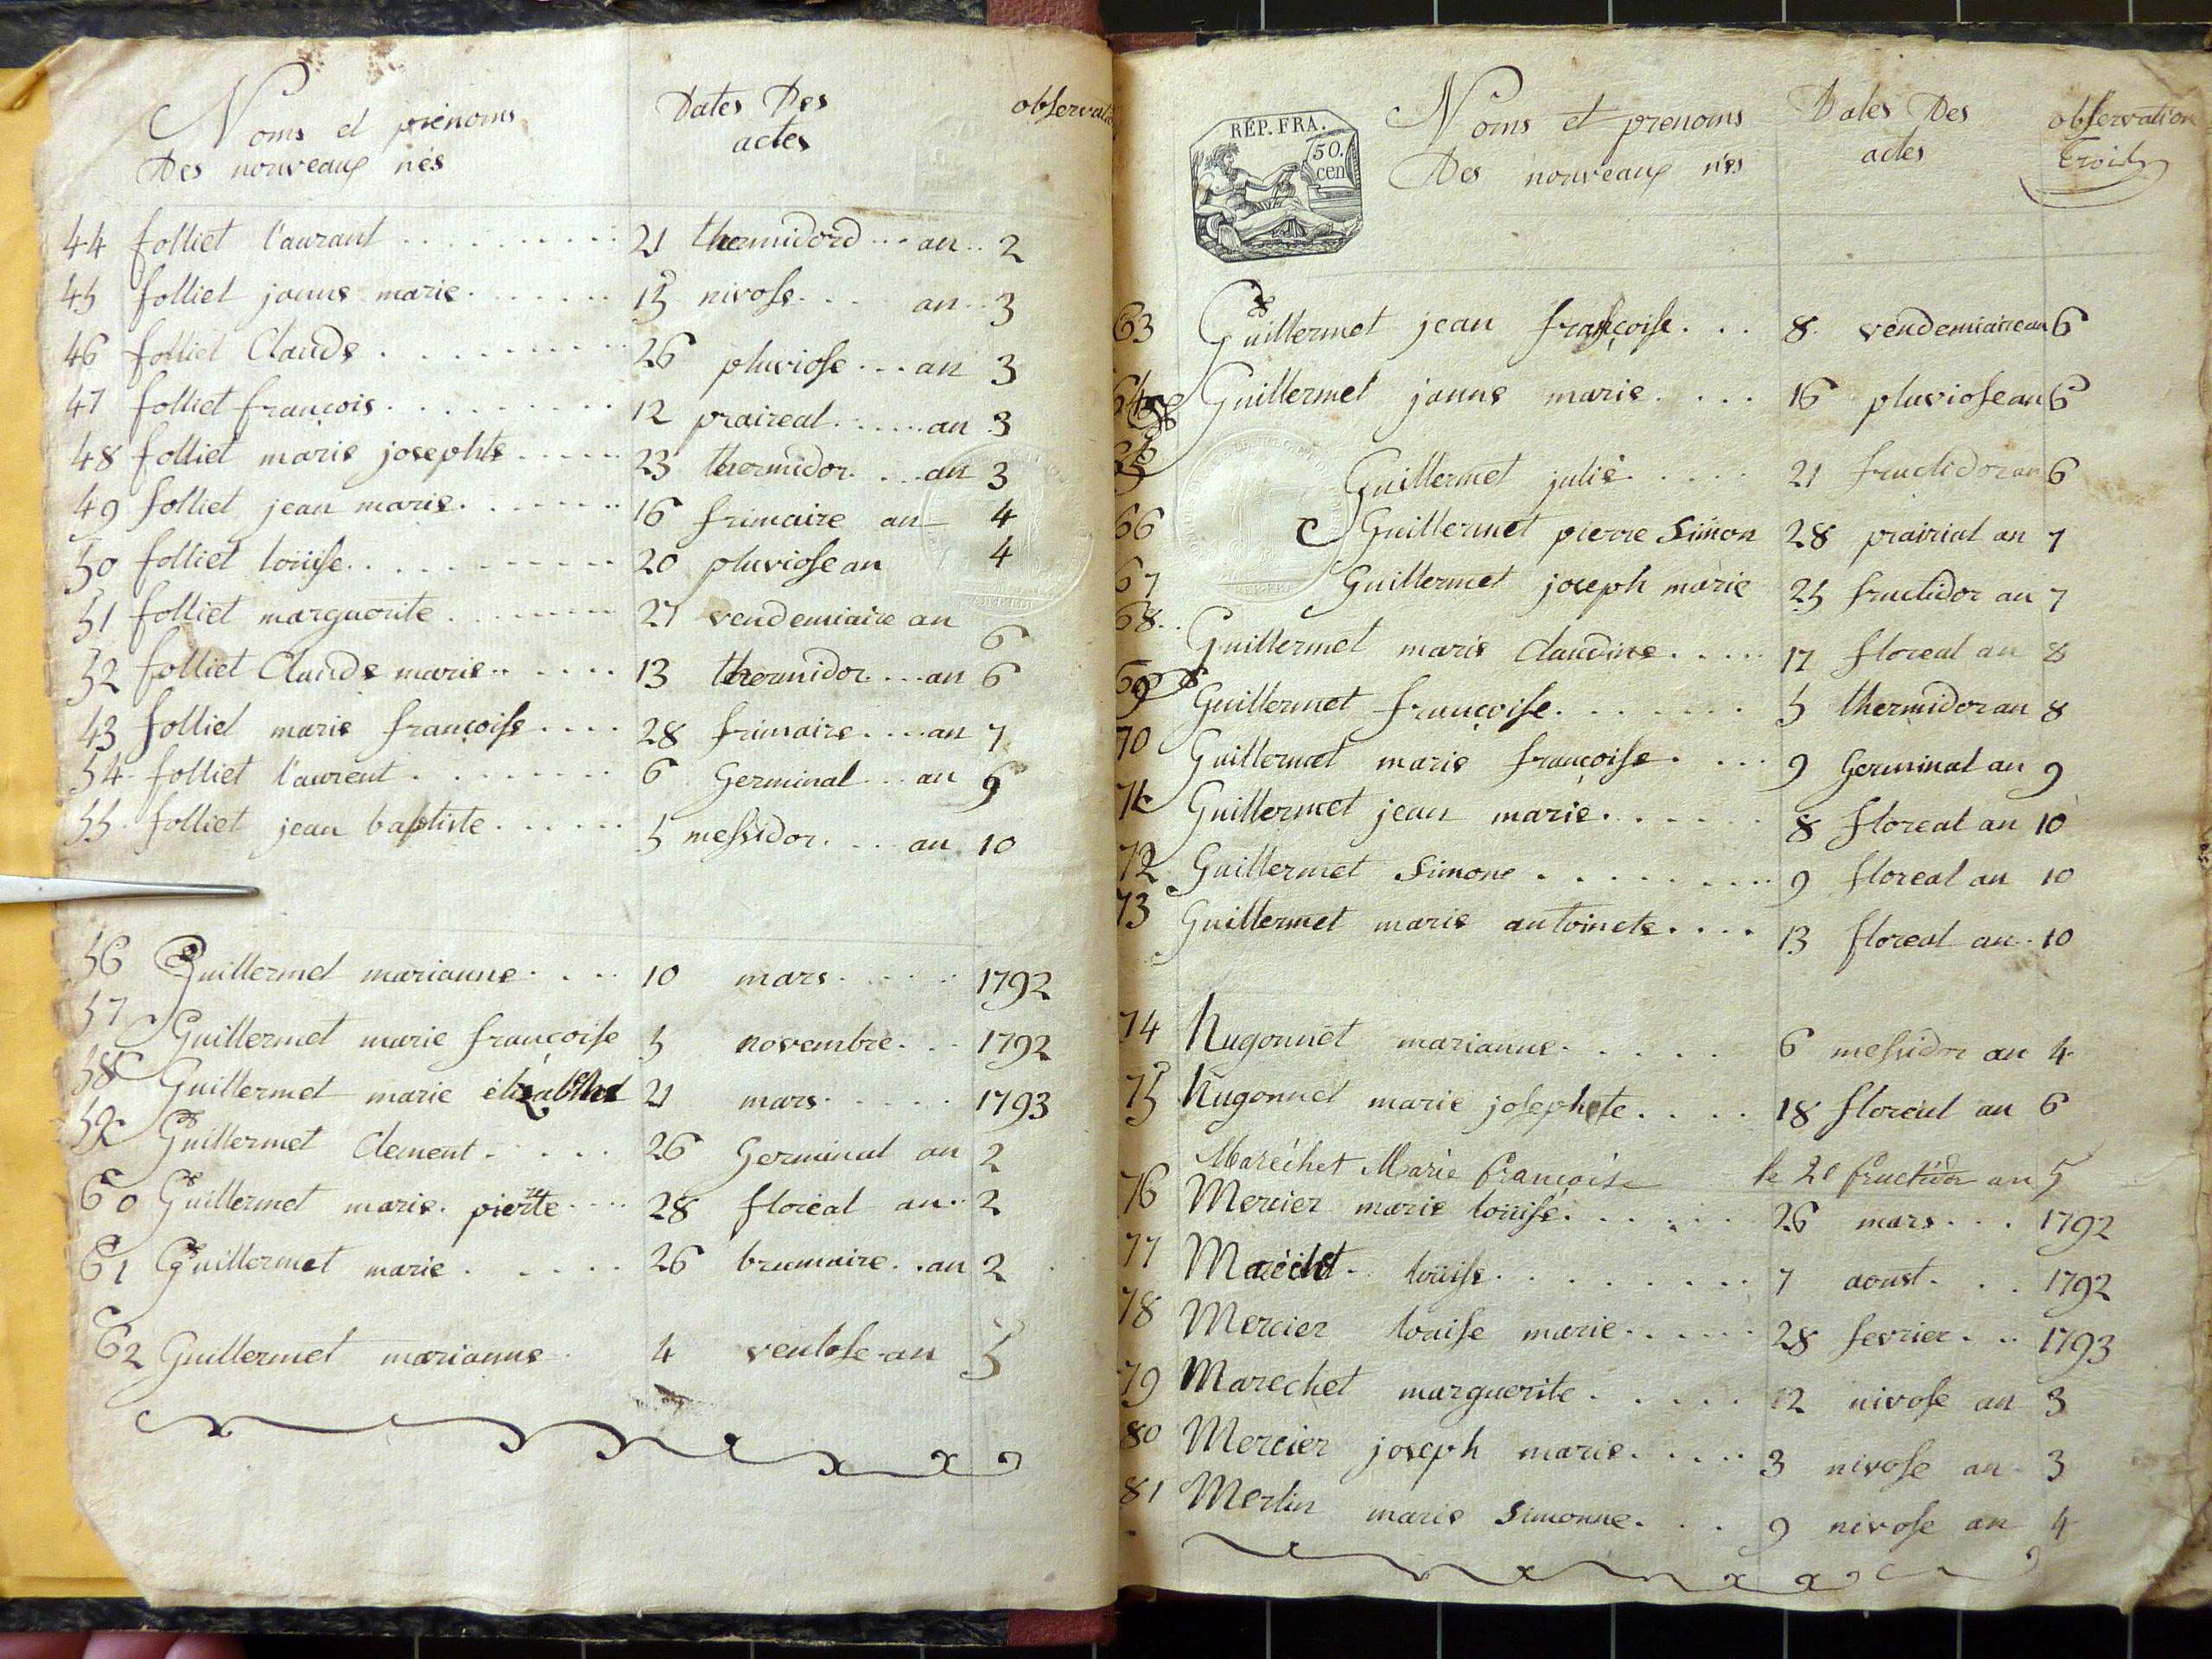 Noms et prénoms
Des nouveaux nés
Dates Des
actes
observati
44 folliet l'aurant 21 thermidord an 2
45 folliet janne marie 15 nivose an 3
46 folliet Claude 26 pluviose an 3
47 folliet françois 12 praireal an 3
48 folliet marie josephte 23 thermidor an 3
49 folliet jean marie 16 frimaire an 4
50 folliet loüise 20 pluviose an 4
51 folliet marguerite 27 vendemiaire an 6
52 folliet Claude marie 13 thermidor an 6
43 folliet marie françoise 28 frimaire an 7
54 folliet l'aurent 6 Germinal an 9
55 folliet jean baptiste 5 messidor an 10
56 Guillermet marianne 10 mars 1792
57 Guillermet marie françoise 5 novembre 1792
58 Guillermet marie 21 mars 1793
59 Guillermet Clement 26 Germinal an 2
60 Guillermet marie pierrte 28 floréal an 2
61 Guillermet marie 26 brumaire an 2
62 Guillermet marianne 4 ventose an 5
RÉP. FRA.
50.
cen
Noms et prenoms
Des nouveaux nés
Dates Des
actes
observation
troits
63 Guillermet jean françoise 8 vendemiaire an 6
64 Guillermet janne marie 16 pluviose an 6
Guillermet julie 21 fructidor an 6
66 Guillermet pierre Simon 28 prairial an 7
67 Guillermet joseph marie 25 fructidor an 7
68 Guillermet marie Claudine 17 floreal an 8
69 Guillermet françoise 5 thermidor an 8
70 Guillermet marie françoise 9 Germinal an 9
71 Guillermet jean marie 8 floreal an 10
72 Guillermet Simone 9 floreal an 10
73 Guillermet marie antoinete 13 floreal an 10
74 Hugonnet marianne 6 messidor an 4
75 Hugonnet marie josephte 18 floreal an 6
Maréchet Marie françoise le 21 fructidor an 5
76 Mercier marie loüise 26 mars 1792
77 Maréchet loüise 7 aoust 1792
78 Mercier louise marie 28 fevrier 1793
79 Marechet marguerite 12 nivose an 3
80 Mercier joseph marie 3 nivose an 3
81 Merlin marie Simonne 9 nivose an 4